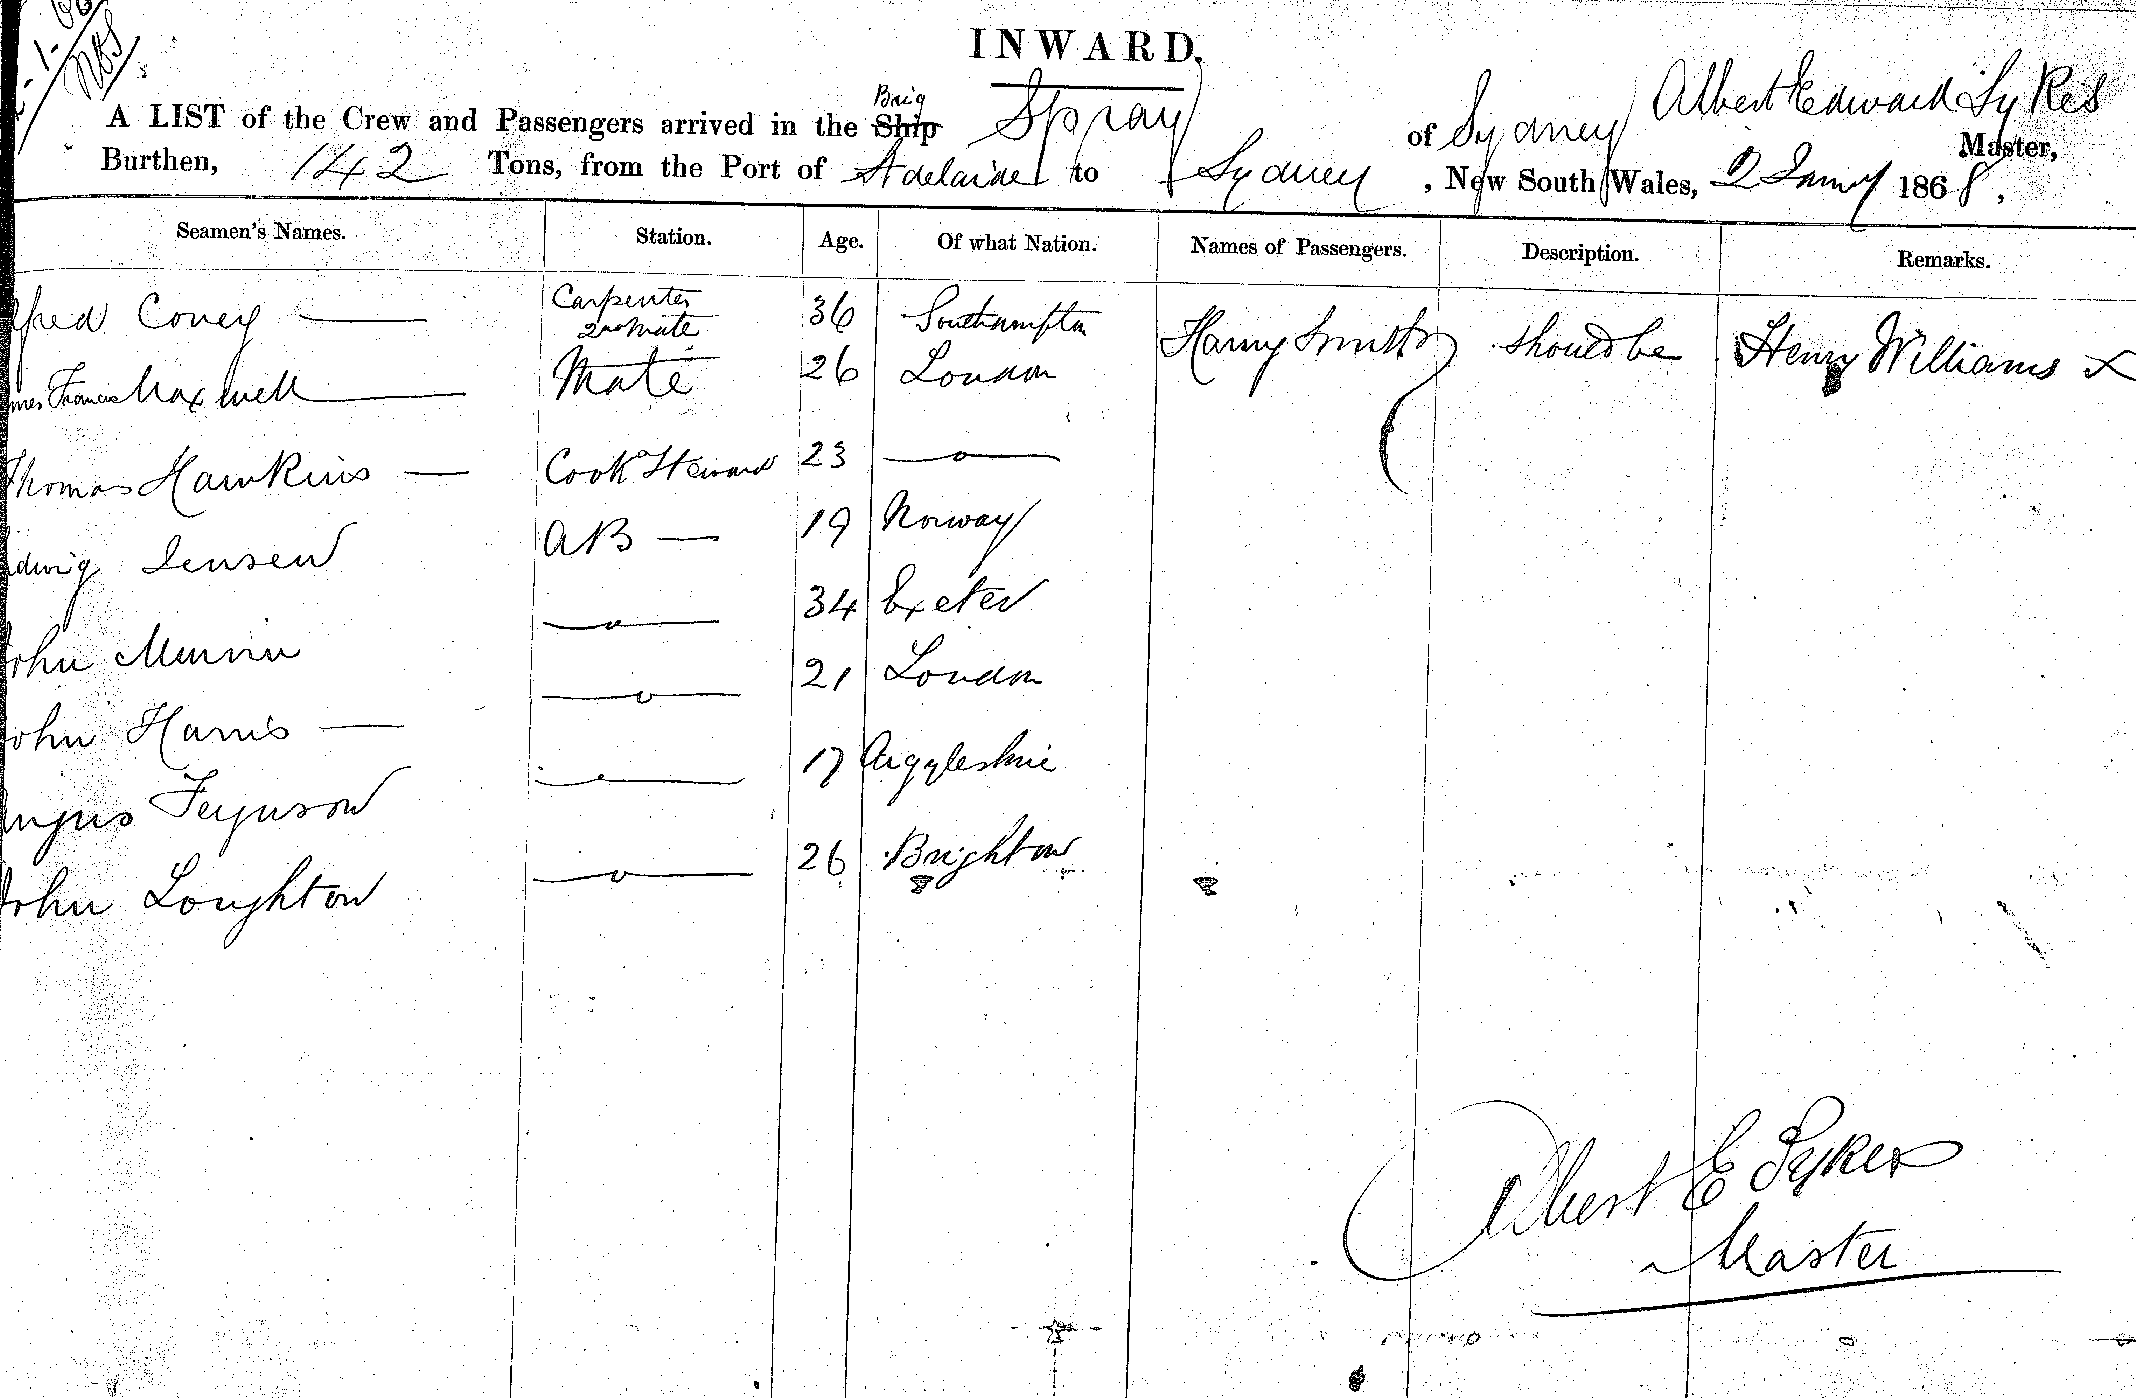 INWARD.
A LIST of the Crew and Passengers arrived in the Ship Brig Spray of Sydney Albert Edward Sykes Master,
Burthen, 142 Tons, from the Port of Adelaide to Sydney , New South Wales, 2 Jany 1868,
Seamen's Names. Station. Age. Of what Nation. Names of Passengers. Description. Remarks.
lfred Coney Carpenter 2nd Mate 36 Southampton Harry Smith should be Henry Williams x
mes Francis Maxwell Mate 26 London
Thomas Hawkins Cook Steward 23 —o—
dwig Jensen AB — 19 Norway
John —o— 34 Exeter
John Harris —o— 21 London
ngus Ferguson —o— 17 Argyleshire
John Loughton —o— 26 Brighton
Albert E Sykes
Master